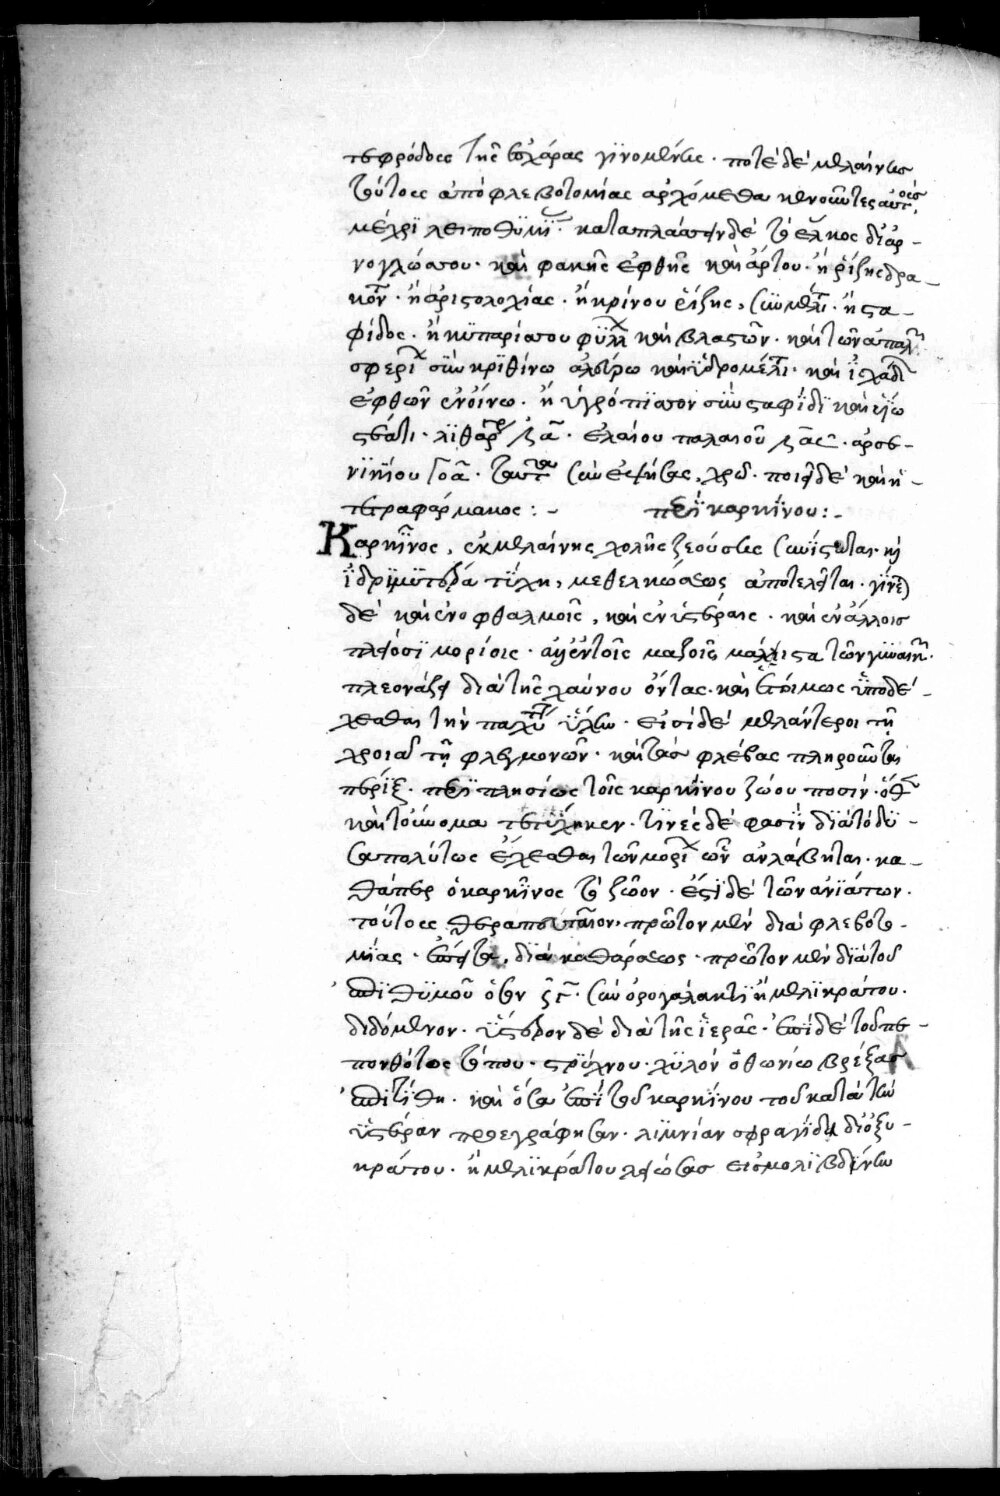 τεφρώδους τῆς ἐσχάρας γινομένης · ποτὲ δὲ μελαίνης
τούτους ἀπὸ φλεβοτομίας ἀρχόμεθα κενοῦντες αὐτοὺς
μέχρι λειποθυμί · καταπλάσσειν δὲ τὸ ἕλκος δι ἀρ-
νογλώσσου · καὶ φακῆς ἑφθῆς καὶ ἄρτου · ἢ ῥίζης δρα-
κον · ἢ ἀριστολοχίας · ἢ κρίνου ῥίζης, σὺν μέλιτι · ἢ στα-
φίδος · ἢ κυπαρίσσου φύλλ καὶ βλαστῶν · καὶ τῶν ἁπαλ
σφερι σὺν κριθίνω ἀλεύρω καὶ ὑδρομέλιτι · καὶ ἰσχάδ
ἑφθῶν ἐν οἴνω · ἢ ὑγρόπισσον σὺν σταφίδι καὶ
στέατι · λιθάρ · ἐλαίου παλαιοῦ · ἀρσε-
νικίου · ταῦτα συνεψήσας, χρῶ · ποιεῖ δὲ καὶ ἡ
τετραφάρμακος : - περὶ καρκίνου : -
Καρκῖνος, ἐκ μελαίνης χολῆς ζεούσης συνίσταται · κἢ
δριμυτέρα τύχη, μεθ ἑλκώσεως ἀποτελεῖται · γίνεται
δὲ καὶ ἐν ὀφθαλμοῖς, καὶ ἐν ὑστέραις · καὶ ἐν ἄλλοις
πλείοσι μορίοις · ἀλλ ἐν τοῖς μαζοῖς μάλιστα τῶν γυναικῶν ·
πλεονάζει διὰ τῆς χαύνου ὄντας · καὶ ἑτοίμως ὑποδέ-
χεσθαι τὴν παχυτ ὕλην · εἰσὶ δὲ μελάντεροι τῇ
χροιᾷ τῶν φλεγμονῶν · καὶ τὰς φλέβας πληροῦνται
πέριξ · παραπλησίως τοῖς καρκίνου ζώου ποσίν · ὅθεν
καὶ τὸ ὄνομα τετύχηκεν · τινὲς δέ φασιν διὰ τὸ δυ-
σαπολύτως ἔχεσθαι τῶν μορι ὧν ἀνλάβηται · κα-
θάπερ ὁ καρκῖνος τὸ ζῶον · ἔστι δὲ τῶν ἀνιάτων ·
τούτους θεραπευτέον · πρῶτον μὲν διὰ φλεβοτο-
μίας · ἔπειτα, διὰ καθάρσεως · πρῶτον μὲν διὰ τοῦ
ἐπιθύμου · σὺν ὀρογάλακτι ἢ μελικράτου ·
διδόμενον · ὕστερον δὲ διὰ τῆς ἱερᾶς · ἐπὶ δὲ τοῦ πε-
πονθότος τόπου · στρύχνου · χυλὸν ὀθωνίω βρέξας
ἐπιτίθη · καὶ ὅσα ἐπὶ τοῦ καρκίνου τοῦ κατὰ τὴν
ὑστέραν προεγράφησαν · λιμνίαν σφραγίδα δι ὀξυ-
κράτου · ἢ μελικράτου λειώσας εἰς μολιβδίνην